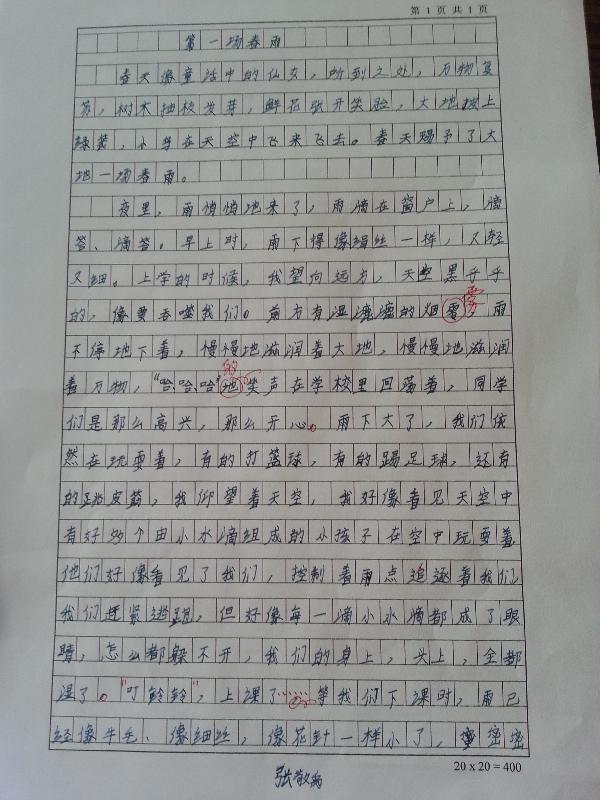 第1页共1页
第一场春雨
春天像童话中的仙女，所到之处，万物复
苏，树木抽枝发芽，鲜花张开笑脸，大地披上
绿装，小鸟在天空中飞来飞去。春天赐予了大
地一场春雨。
夜里，雨悄悄地来了，雨滴在窗户上，滴
答、滴答。早上时，雨下得像绢丝一样，又轻
又细。上学的时候，我望向远方，天空黑乎乎
的，像要吞噬我们。前方有湿漉漉的烟雾，雨
不停地下着，慢慢地滋润着大地，慢慢地滋润
的
着万物，“哈哈哈”地笑声在学校里回荡着，同学
们是那么高兴，那么开心。雨下大了，我们依
然在玩耍着，有的打篮球，有的踢足球，还有
的跳皮筋，我仰望着天空，我好像看见天空中
有好多个由小水滴组成的小孩子在空中玩耍着
他们好像看见了我们，控制着雨点追逐着我们
我们赶紧逃跑，但好像每一滴小水滴都成了眼
睛，怎么都躲不开，我们的身上，头上，全都
湿了。“叮铃铃”，上课了……等我们下课时，雨已
经像牛毛、像细丝，像花针一样小了，密密
20 x 20 = 400